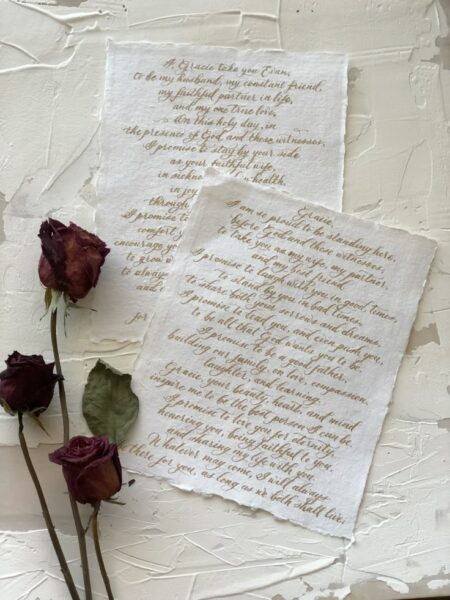 I, Gracie take you Evan,
to be my husband, my constant friend,
my faithful partner in life,
and my one true love,
On this holy day, in
the presence of God and these witnesses,
I promise to stay by your side
as your faithful wife,
in sickness in health,
in joy
through
I promise to
comfort
encourage you
to grow
to always
and
for
Gracie,
I am so proud to be standing here,
before God and these witnesses,
to take you as my wife, my partner,
and my best friend.
I promise to laugh with you in good times,
to stand by you in bad times,
to share both your sorrows and dreams.
I promise to lead you, and even push you,
to be all that God wants you to be.
I promise to be a good father,
building our family on love, compassion,
laughter and learning.
Gracie, your beauty, heart, and mind
inspire me to be the best person I can be.
I promise to love you for eternity,
honoring you, being faithful to you,
and sharing my life with you.
Whatever may come, I will always
be there for you, as long as we both shall live.